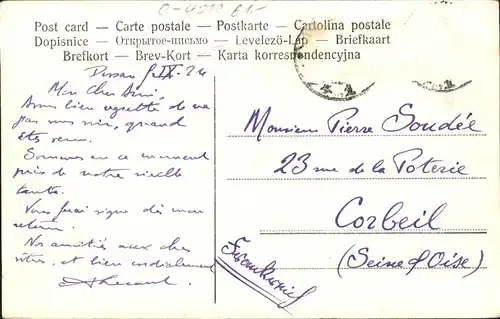 Post card — Carte postale — Postkarte — Cartolina postale
Dopisnice — Открытое-письмо — Levelezö-Lap — Briefkaart
Brefkort — Brev-Kort — Karta korrespondencyjna
IX-24
Mon cher Ami,
Avons bien regretté de ne
pas vous voir, quand
êtes venu.
Sommes en ce moment
près de notre vieille
tante.
Vous ferai signe dès mon
retour.
Nos amitiés aux chers
vôtres, et bien cordialement
Monsieur Pierre Soudée
23 rue de la Poterie
Corbeil
(Seine & Oise)
Frankreich